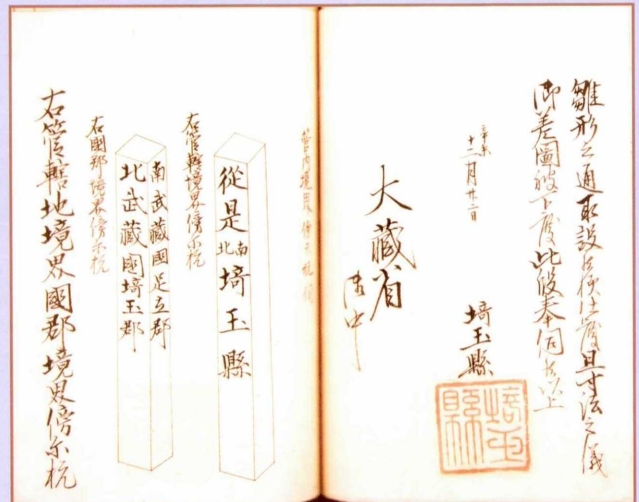 雛形之通取設候様仕度且寸法之儀
御差圖被下度此段奉伺候以上
辛未
十二月廿二日
埼玉縣
埼玉縣
大藏省
御中
管内境界傍示杭
從是
南
北
埼玉縣
右管轄境界傍示杭
南武藏國足立郡
北武藏國埼玉郡
右國郡境界傍示杭
右管轄地境界國郡境界傍示杭